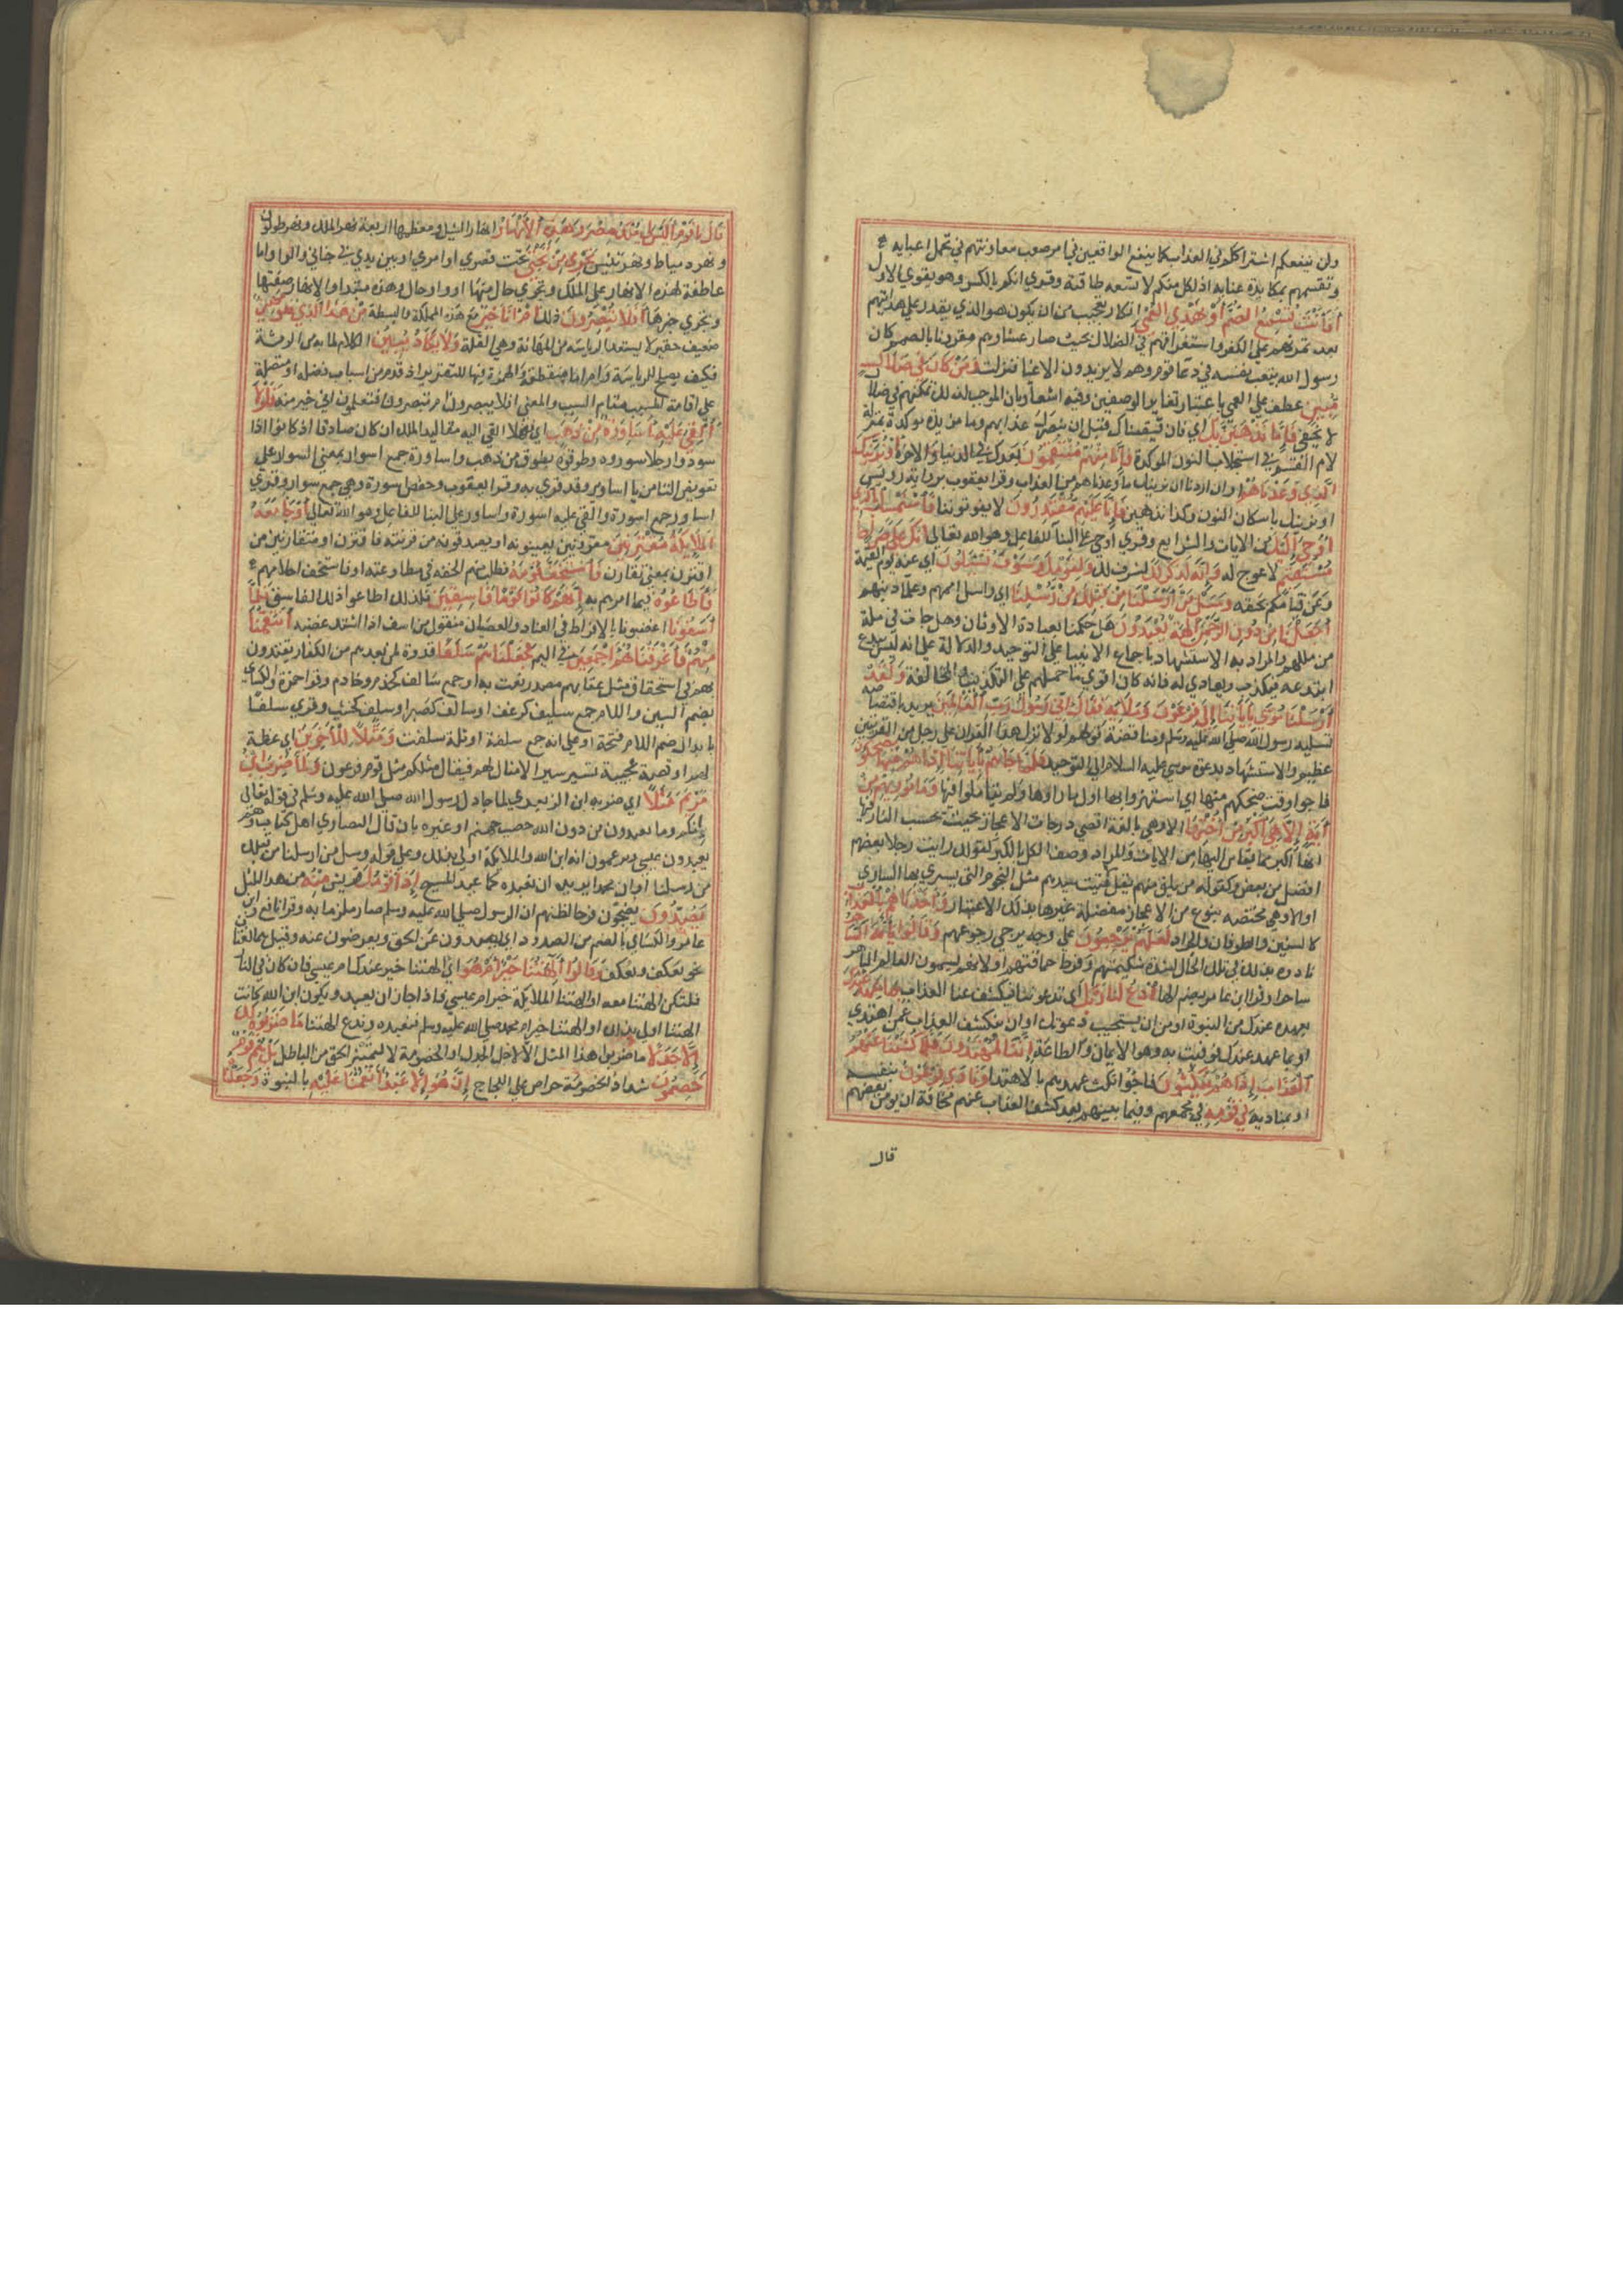 ولن ينفعكم اشتراككم في العذاب كما ينفع الواقعين في امر صعب معاونتهم في تحمل اعبايه
وتقسمهم بمكابدة عنايه اذ لكل منكم ما لا تسعه طاقته وقري انكم بالكسر وهو يقوي الاول
أفأنت تسمع الصم أو تهدي العمي انكار تعجيب من ان يكون هو الذي يقدر علي هدايتهم
بعد تمرنهم علي الكفر واستغراقهم في الضلال بحيث صار عشاوهم مقرونا بالصمم كان
رسول الله يتعب نفسه في دعا قومه وهم لا يزيدون الا غيا فنزلت ومن كان في ضلال
مبين عطف علي العمي باعتبار تغاير الوصفين وفيه اشعار بان الموجب لذلك تمكنهم في ضلال
لا يخفي فإما نذهبن بك اي فان قبضناك قبل ان نبصرك عذابهم وما مزيدة موكدة بمنزلة
لام القسم في استجلاب النون الموكدة فإنا منهم منتقمون بعدك في الدنيا والاخرة أو نرينك
الذي وعدناهم او ان اردنا ان نرينك ما وعدناهم من العذاب وقرا يعقوب برواية رويس
او نرينك باسكان النون وكذا نذهبن فإنا عليهم مقتدرون لا يفوتوننا فاستمسك بالذي
أوحي إليك من الايات والشرايع وقري اوحي علي البنآ للفاعل وهو الله تعالي إنك علي صراط
مستقيم لا عوج له وإنه لذكر لك لشرف لك ولقومك وسوف تسئلون اي عنه يوم القيمة
وعن قيامكم بحقه وسئل من أرسلنا من قبلك من رسلنا اي واسل اممهم وعلما دينهم
أجعلنا من دون الرحمن آلهة يعبدون هل حكمنا بعبادة الاوثان وهل جات في ملة
من مللهم والمراد به الاستشهاد باجماع الانبيا علي التوحيد والدلالة علي انه ليس ببدع
ابتدعه فيكذب ويعادي له فانه كان اقوي ما حملهم علي التكذيب والمخالفة ولقد
أرسلنا موسى بآياتنا إلى فرعون وملايه فقال إني رسول رب العالمين يريد باقتصاصه
تسلية رسول الله صلي الله عليه وسلم ومناقضة قولهم لولا نزل هذا القران علي رجل من القريتين
عظيم والاستشهاد بدعوة موسي عليه السلام الي التوحيد فلما جاءهم بآياتنا إذا هم منها يضحكون
فاجوا وقت ضحكهم منها اي استهزوا بها اول ما راوها ولم يتاملوا فيها وما نريهم من
آية إلا هي أكبر من أختها الا وهي بالغة اقصي درجات الاعجاز بحيث يحسب الناظر فيها
انها اكبر مما يقاس اليها من الايات والمراد وصف الكل بالكبر كقولك رايت رجالا بعضهم
افضل من بعض وكقوله من يلق منهم يقل لاقيت سيدهم مثل النجوم التي يسري بها الساري
او الا وهي مختصه بنوع من الاعجاز مفضلة علي غيرها بذلك الاعتبار وأخذناهم بالعذاب
كالسنين والطوفان والجراد لعلهم يرجعون علي وجه يرجي رجوعهم وقالوا يا أيه الساحر
نادوه بذلك في تلك الحال لشدة شكيمتهم وفرط حماقتهم او لانهم يسمون العالم الماهر
ساحرا وقرا ابن عامر بضم الها ادع لنا ربك اي تدعو لنا فيكشف عنا العذاب بما عهد عندك
بعهده عندك من النبوة او من ان يستجيب دعوتك او ان يكشف العذاب عمن اهتدي
او بما عهد عندك فوفيت به وهو الايمان والطاعة إننا لمهتدون فلما كشفنا عنهم
العذاب إذا هم ينكثون فاجوا نكث عهدهم بالاهتدا ونادي فرعون بنفسه
او بمناديه في قومه في مجمعهم وفيما بينهم بعد كشف العذاب عنهم مخافة ان يومن بعضهم
قال
قال يا قوم أليس لي ملك مصر وهذه الأنهار انهار النيل ومعظمها اربعة نهر الملك ونهر طولون
ونهر دمياط ونهر تنيس تجري من تحتي تحت قصري او امري او بين يدي في جناني والواو اما
عاطفة لهذه الانهار علي الملك وتجري حال منها او واو حال وهذه مبتدا والانهار صفتها
وتجري خبرها أفلا تبصرون ذلك أم أنا خير مع هذه المملكة والبسطة من هذا الذي هو مهين
ضعيف حقير لا يستعد للرياسه من المهانة وهي القلة ولا يكاد يبين الكلام لما به من الرثة
فكيف يصلح للرياسة وام اما منقطعة والهمزة فيها للتقرير اذ قدم من اسباب فضله او متصلة
علي اقامة المسبب مقام السبب والمعني افلا تبصرون ام تبصرون فتعلمون اني خير منه فلولا
ألقي عليه أساورة من ذهب اي فهلا القي اليه مقاليد الملك ان كان صادقا اذ كانوا اذا
سودوا رجلا سوروه وطوقوه بطوق من ذهب واساورة جمع اسوار بمعني السوار علي
تعويض التا من يا اساوير وقد قري به وقرا يعقوب وحفص اسورة وهي جمع سوار وقري
اساور جمع اسورة والقي عليه اسورة واساور علي البنا للفاعل وهو الله تعالي أو جآء معه
الملائكة مقترنين مقرونين يعينونه او يصدقونه من قرنته فاقترن او متقارنين من
اقترن بمعني تقارن فاستخف قومه فطلب منهم الخفة في مطاوعته او فاستخف احلامهم
فأطاعوه فيما امرهم به إنهم كانوا قوما فاسقين فلذلك اطاعوا ذلك الفاسق فلما
آسفونا اغضبونا بالافراط في العناد والعصيان منقول من اسف اذا اشتد غضبه انتقمنا
منهم فأغرقناهم أجمعين في اليم فجعلناهم سلفا قدوة لمن بعدهم من الكفار يقتدون
بهم في استحقاق مثل عقابهم مصدر نعت به او جمع سالف كخدم وخادم وقرا حمزة والكسائي
بضم السين واللام جمع سليف كرغف او سالف كصبر او سلف كخشب وقري سلفا
بابدال ضم اللام فتحة او علي انه جمع سلفة اي ثلة سلفت ومثلا للآخرين اي عظة
لهم او قصة عجيبة تسير مسير الامثال لهم فيقال مثلكم مثل قوم فرعون ولما ضرب ابن
مريم مثلا اي ضربه ابن الزبعري لما جادل رسول الله صلي الله عليه وسلم في قوله تعالي
إنكم وما تعبدون من دون الله حصب جهنم او غيره بان قال النصاري اهل كتاب وهم
يعبدون عيسي ويزعمون انه ابن الله والملايكة اولي بذلك وعلي قوله وسل من ارسلنا من قبلك
من رسلنا او ان محمدا يريد ان نعبده كما عبد المسيح إذا قومك قريش منه من هذا المثل
يصدون يضجون فرحا لظنهم ان الرسول صلي الله عليه وسلم صار ملزما به وقرا نافع وابن
عامر والكساي بالضم من الصدود اي يصدون عن الحق ويعرضون عنه وقيل هما لغتان
نحو يعكف ويعكف وقالوا أآلهتنا خير أم هو اي آلهتنا خير عندك ام عيسي فان كان في النار
فلتكن الهتنا معه او الهتنا الملايكة خير ام عيسي فاذا جاز ان يعبد ويكون ابن الله كانت
الهتنا اولي بذلك او الهتنا خير ام محمد صلي الله عليه وسلم فنعبده وندع الهتنا ما ضربوه لك
إلا جدلا ما ضربوا هذا المثل الا لاجل الجدل والخصومة لا لتمييز الحق من الباطل بل هم قوم
خصمون شداد الخصومة حراص علي اللجاج إن هو إلا عبد أنعمنا عليه بالنبوة وجعلناه